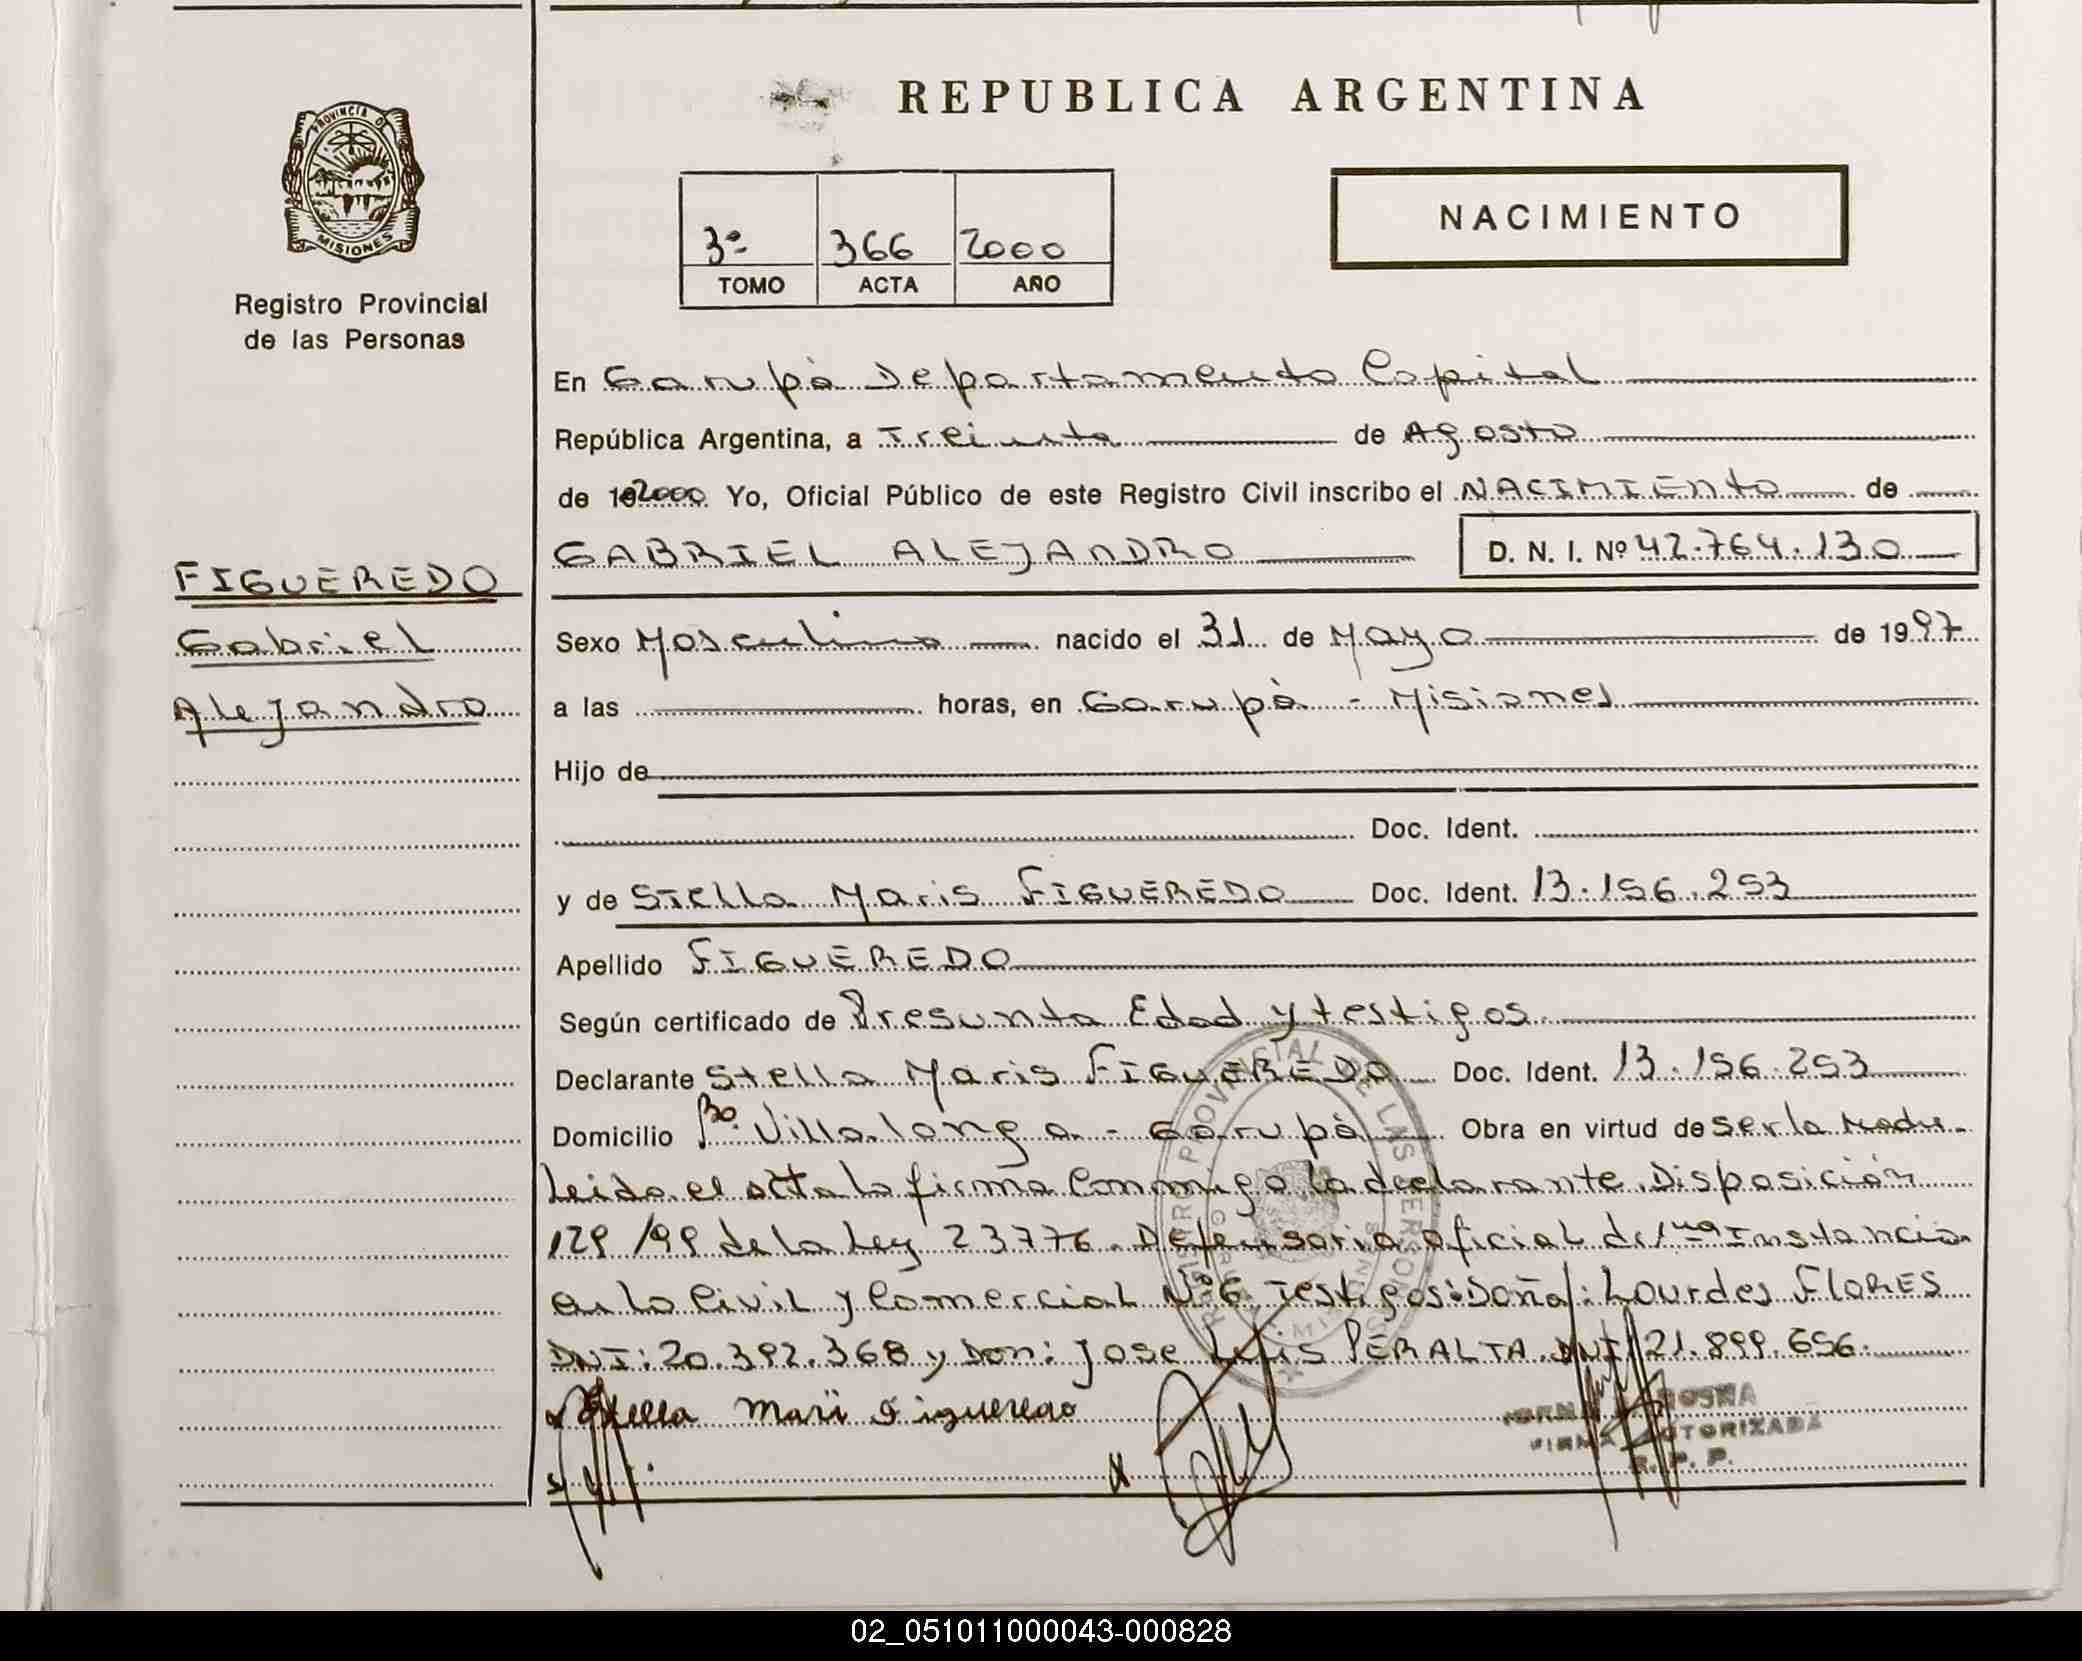 REPUBLICA ARGENTINA
PROVINCIA DE
MISIONES
Registro Provincial
de las Personas
3º 366 2000
TOMO ACTA AÑO
NACIMIENTO
En Garupà Departamento Capital
República Argentina, a Treinta de Agosto
de 192000 Yo, Oficial Público de este Registro Civil inscribo el NACIMIENTO de
GABRIEL ALEJANDRO D. N. I. Nº 42.764.130
FIGUEREDO
Gabriel
Alejandro
Sexo Masculino nacido el 31 de Mayo de 1997
a las horas, en Garupà - Misiones
Hijo de
Doc. Ident.
y de Stella Maris FIGUEREDO Doc. Ident. 13.156.253
Apellido FIGUEREDO
Según certificado de Presunta Edad y testigos
Declarante Stella Maris FIGUEREDO Doc. Ident. 13.156.253
Domicilio Bº. Villalonga - Garupà Obra en virtud de ser la Madre
Leida el acta la firma Conmigo la declarante. Disposición
129/99 de la Ley 23776. Defensoria oficial de 1ra Instancia
en lo Civil y Comercial Nº 6. Testigos: Doña: Lourdes FLORES
DNI: 20.392.368 y Don: Jose Luis PERALTA DNI: 21.899.656.
Stella Mari Figueredo
FIRMA AUTORIZADA
R. P. P.
REGISTRO PROVINCIAL DE LAS PERSONAS
02_051011000043-000828